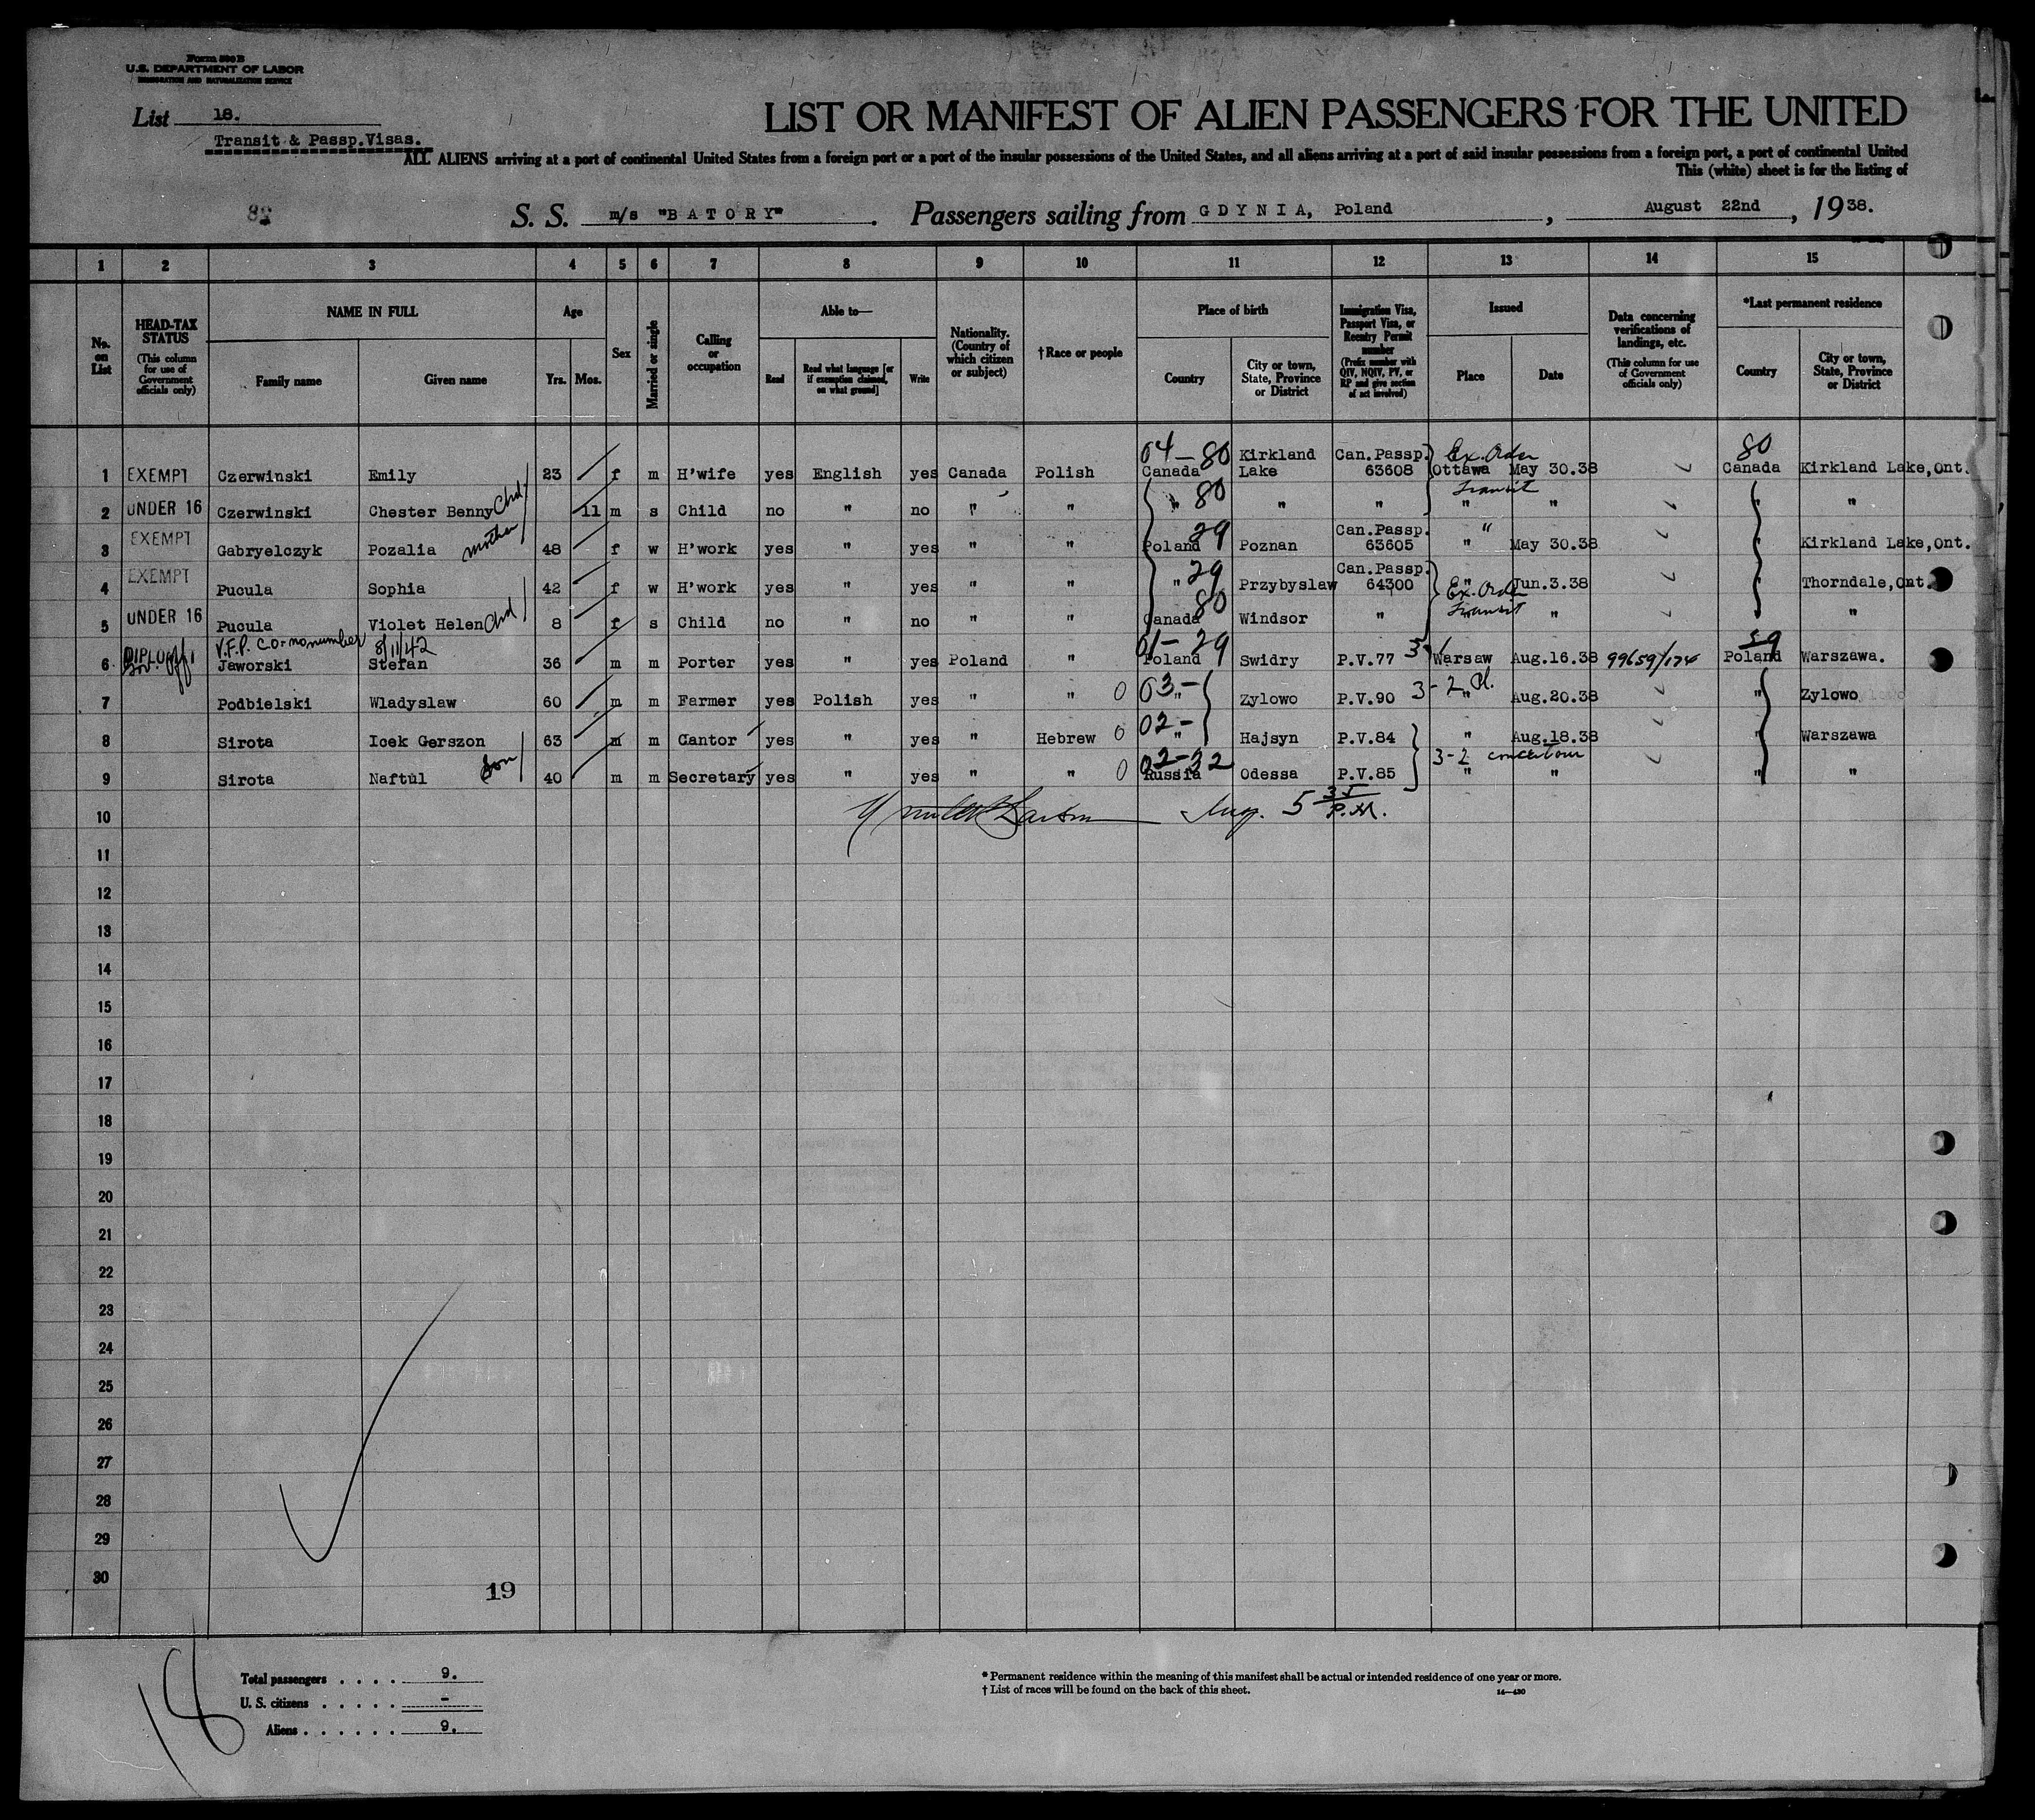 Form 500 B
U.S. DEPARTMENT OF LABOR
IMMIGRATION AND NATURALIZATION SERVICE
List 18.
Transit & Passp.Visas.
LIST OR MANIFEST OF ALIEN PASSENGERS FOR THE UNITED
ALL ALIENS arriving at a port of continental United States from a foreign port or a port of the insular possessions of the United States, and all aliens arriving at a port of said insular possessions from a foreign port, a port of continental United
This (white) sheet is for the listing of
S. S. m/s "BATORY" . Passengers sailing from GDYNIA, Poland , August 22nd , 19 38.
1 2 3 4 5 6 7 8 9 10 11 12 13 14 15
No. on List
HEAD-TAX STATUS (This column for use of Government officials only)
NAME IN FULL Family name Given name
Age Yrs. Mos.
Sex
Married or single
Calling or occupation
Able to— Read Read what language [or if exemption claimed, on what ground] Write
Nationality. (Country of which citizen or subject)
†Race or people
Place of birth Country City or town, State, Province or District
Immigration Visa, Passport Visa, or Reentry Permit number (Prefix number with QIV, NQIV, PV, or RP and give section of act involved)
Issued Place Date
Data concerning verifications of landings, etc. (This column for use of Government officials only)
*Last permanent residence Country City or town, State, Province or District
1 EXEMPT Czerwinski Emily 23 f m H'wife yes English yes Canada Polish 04-80 Canada Kirkland Lake Can.Passp. 63608 Ex. Order Ottawa May 30.38 80 Canada Kirkland Lake,Ont.
2 UNDER 16 Czerwinski Chester Benny Chd 11 m s Child no " no " " " 80 " " Transit " " " "
3 EXEMPT Gabryelczyk Pozalia mother 48 f w H'work yes " yes " " Poland 29 Poznan Can.Passp. 63605 " " May 30.38 " Kirkland Lake,Ont.
4 EXEMPT Pucula Sophia 42 f w H'work yes " yes " " " 29 Przybyslaw Can.Passp. 64300 " Ex. Order Jun.3.38 " Thorndale,Ont.
5 UNDER 16 Pucula Violet Helen Chd 8 f s Child no " no " " Canada 80 Windsor " Transit " " " "
V.F.P. Co-no number 8/11/42
6 Jaworski Stefan 36 m m Porter yes " yes Poland " 01-29 Poland Swidry P.V.77 3 Warsaw Aug.16.38 99659/174 59 Poland Warszawa.
7 Podbielski Wladyslaw 60 m m Farmer yes Polish yes " " 0 03- " Zylowo P.V.90 3-2 Pl. " Aug.20.38 " Zylowo
8 Sirota Icek Gerszon 63 m m Cantor yes " yes " Hebrew 0 02- " Hajsyn P.V.84 " Aug.18.38 " Warszawa
9 Sirota Naftul Son 40 m m Secretary yes " yes " " 0 02-32 Russia Odessa P.V.85 3-2 concert tour " " " "
10 Aug. 5 35 P.M.
11
12
13
14
15
16
17
18
19
20
21
22
23
24
25
26
27
28
29
30
19
18
Total passengers . . . . 9.
U. S. citizens . . . . . -
Aliens . . . . . . 9.
* Permanent residence within the meaning of this manifest shall be actual or intended residence of one year or more.
† List of races will be found on the back of this sheet.
14—430